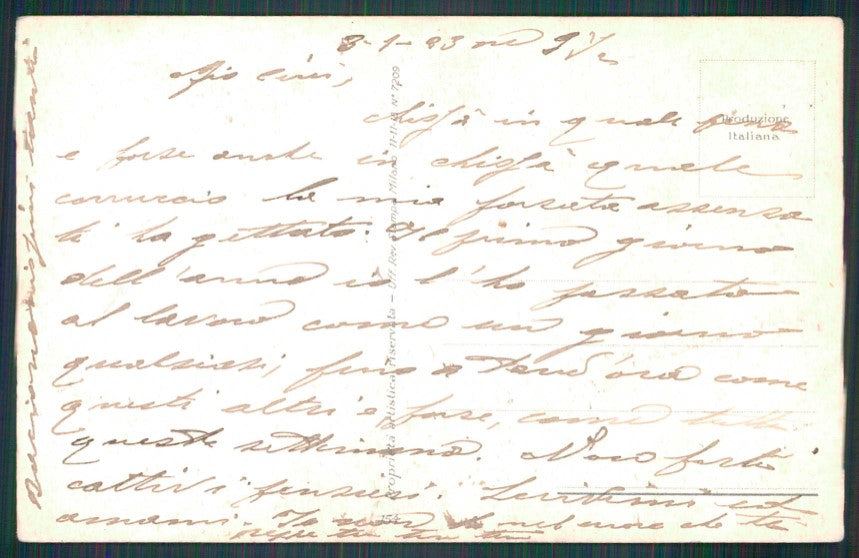 3-1-23 ore 9 1/2
Mio Cirì,
chissà in quale pena
e forse anche in chissà quale
corruccio la mia forzata assenza
ti ha gettato. Il primo giorno
dell'anno io l'ho passato
al lavoro come un giorno
qualsiasi, fino a tard'ora come
questi altri e, forse, come tutta
questa settimana. Non farti
cattivi pensieri. Scrivimi ed
amami. Io sono
nel cuore
Baci
Produzione
Italiana
Proprietà artistica riservata - Milano 11-11- N° 7209